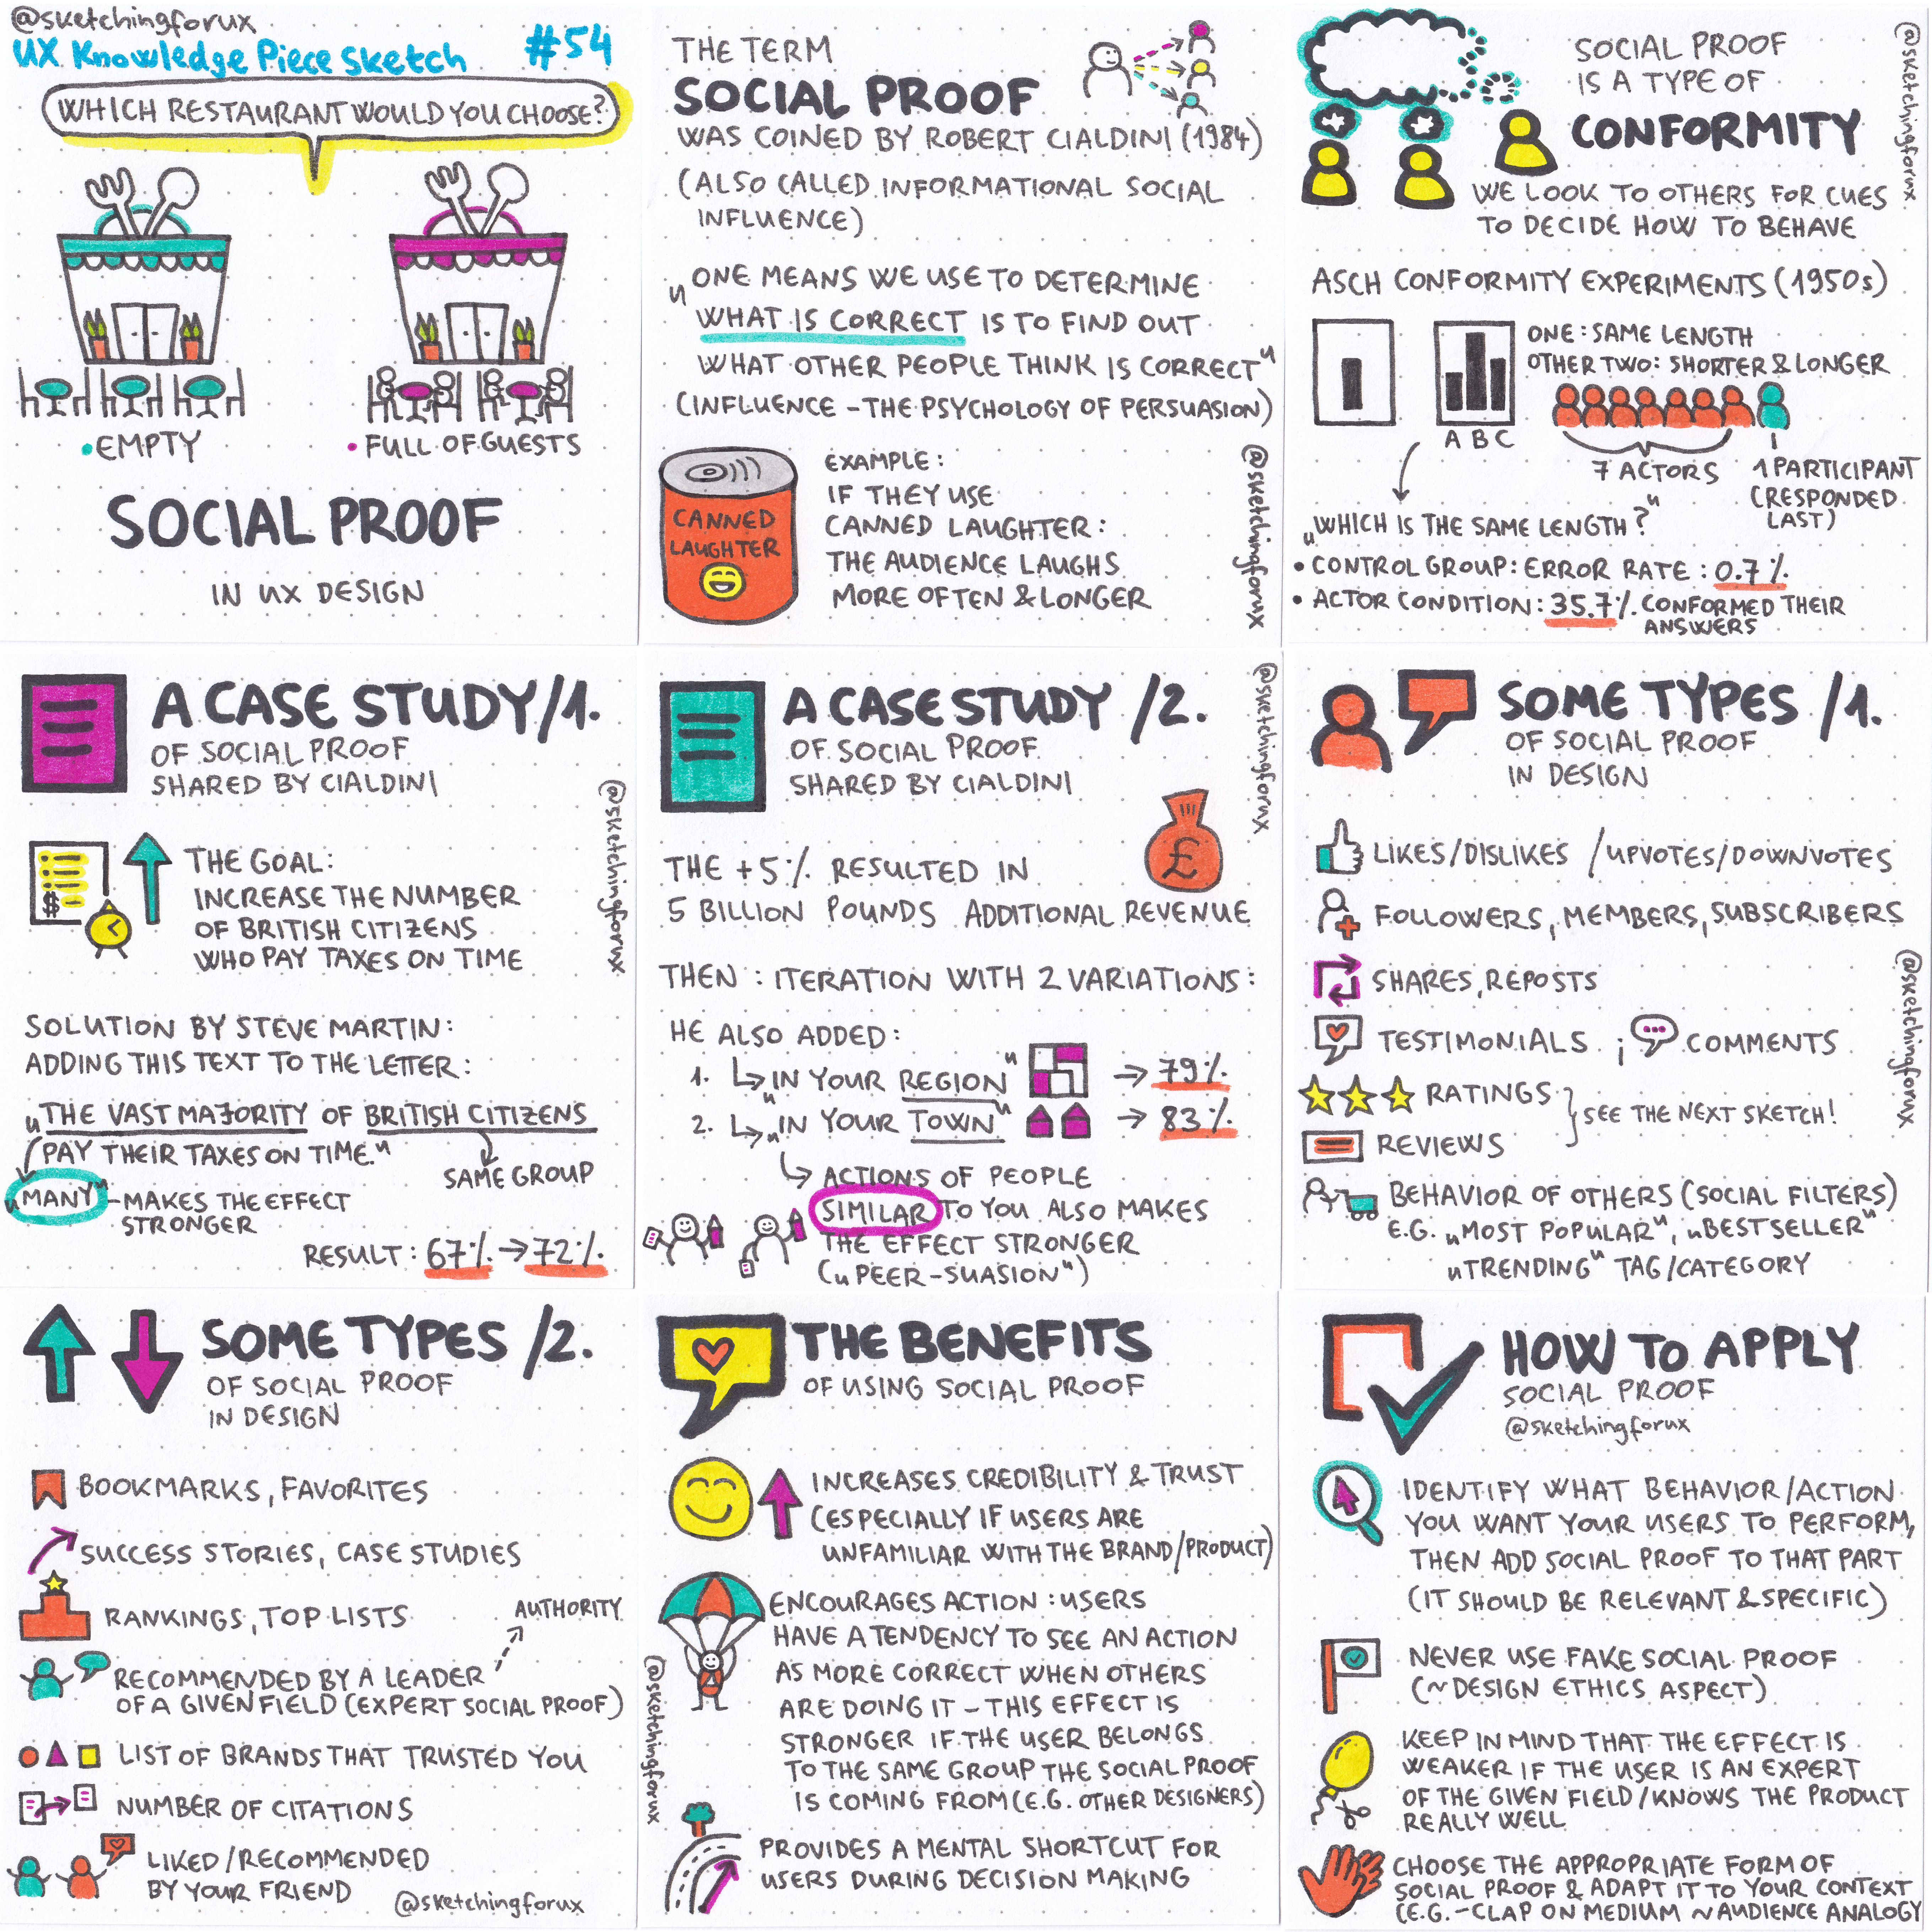 @sketchingforux
UX Knowledge Piece Sketch #54
WHICH RESTAURANT WOULD YOU CHOOSE?
• EMPTY
• FULL OF GUESTS
SOCIAL PROOF
IN UX DESIGN
THE TERM
SOCIAL PROOF
WAS COINED BY ROBERT CIALDINI (1984)
(ALSO CALLED INFORMATIONAL SOCIAL
INFLUENCE)
„ONE MEANS WE USE TO DETERMINE
WHAT IS CORRECT IS TO FIND OUT
WHAT OTHER PEOPLE THINK IS CORRECT"
(INFLUENCE – THE PSYCHOLOGY OF PERSUASION)
CANNED
LAUGHTER
EXAMPLE:
IF THEY USE
CANNED LAUGHTER:
THE AUDIENCE LAUGHS
MORE OFTEN & LONGER
@sketchingforux
SOCIAL PROOF
IS A TYPE OF
CONFORMITY
WE LOOK TO OTHERS FOR CUES
TO DECIDE HOW TO BEHAVE
@sketchingforux
ASCH CONFORMITY EXPERIMENTS (1950s)
ONE: SAME LENGTH
OTHER TWO: SHORTER & LONGER
A B C
7 ACTORS
1 PARTICIPANT
(RESPONDED
LAST)
„WHICH IS THE SAME LENGTH?"
• CONTROL GROUP: ERROR RATE: 0.7%
• ACTOR CONDITION: 35.7% CONFORMED THEIR
ANSWERS
A CASE STUDY /1.
OF SOCIAL PROOF
SHARED BY CIALDINI
@sketchingforux
$
THE GOAL:
INCREASE THE NUMBER
OF BRITISH CITIZENS
WHO PAY TAXES ON TIME
SOLUTION BY STEVE MARTIN:
ADDING THIS TEXT TO THE LETTER:
„THE VAST MAJORITY OF BRITISH CITIZENS
PAY THEIR TAXES ON TIME."
SAME GROUP
„MANY" – MAKES THE EFFECT
STRONGER
RESULT: 67% → 72%
A CASE STUDY /2.
OF SOCIAL PROOF
SHARED BY CIALDINI
@sketchingforux
£
THE +5% RESULTED IN
5 BILLION POUNDS ADDITIONAL REVENUE
THEN: ITERATION WITH 2 VARIATIONS:
HE ALSO ADDED:
1. ↳ „IN YOUR REGION" → 79%
2. ↳ „IN YOUR TOWN" → 83%
↳ ACTIONS OF PEOPLE
SIMILAR TO YOU ALSO MAKES
THE EFFECT STRONGER
(„PEER-SUASION")
SOME TYPES /1.
OF SOCIAL PROOF
IN DESIGN
LIKES/DISLIKES / UPVOTES/DOWNVOTES
FOLLOWERS, MEMBERS, SUBSCRIBERS
SHARES, REPOSTS
TESTIMONIALS ; COMMENTS
RATINGS
REVIEWS
SEE THE NEXT SKETCH!
BEHAVIOR OF OTHERS (SOCIAL FILTERS)
E.G. „MOST POPULAR", „BESTSELLER"
„TRENDING" TAG/CATEGORY
@sketchingforux
SOME TYPES /2.
OF SOCIAL PROOF
IN DESIGN
BOOKMARKS, FAVORITES
SUCCESS STORIES, CASE STUDIES
RANKINGS, TOP LISTS
AUTHORITY
RECOMMENDED BY A LEADER
OF A GIVEN FIELD (EXPERT SOCIAL PROOF)
LIST OF BRANDS THAT TRUSTED YOU
NUMBER OF CITATIONS
LIKED/RECOMMENDED
BY YOUR FRIEND
@sketchingforux
THE BENEFITS
OF USING SOCIAL PROOF
INCREASES CREDIBILITY & TRUST
(ESPECIALLY IF USERS ARE
UNFAMILIAR WITH THE BRAND/PRODUCT)
ENCOURAGES ACTION: USERS
HAVE A TENDENCY TO SEE AN ACTION
AS MORE CORRECT WHEN OTHERS
ARE DOING IT – THIS EFFECT IS
STRONGER IF THE USER BELONGS
TO THE SAME GROUP THE SOCIAL PROOF
IS COMING FROM (E.G. OTHER DESIGNERS)
@sketchingforux
PROVIDES A MENTAL SHORTCUT FOR
USERS DURING DECISION MAKING
HOW TO APPLY
SOCIAL PROOF
@sketchingforux
IDENTIFY WHAT BEHAVIOR/ACTION
YOU WANT YOUR USERS TO PERFORM,
THEN ADD SOCIAL PROOF TO THAT PART
(IT SHOULD BE RELEVANT & SPECIFIC)
NEVER USE FAKE SOCIAL PROOF
(~DESIGN ETHICS ASPECT)
KEEP IN MIND THAT THE EFFECT IS
WEAKER IF THE USER IS AN EXPERT
OF THE GIVEN FIELD/KNOWS THE PRODUCT
REALLY WELL
CHOOSE THE APPROPRIATE FORM OF
SOCIAL PROOF & ADAPT IT TO YOUR CONTEXT
(E.G. – CLAP ON MEDIUM ~ AUDIENCE ANALOGY